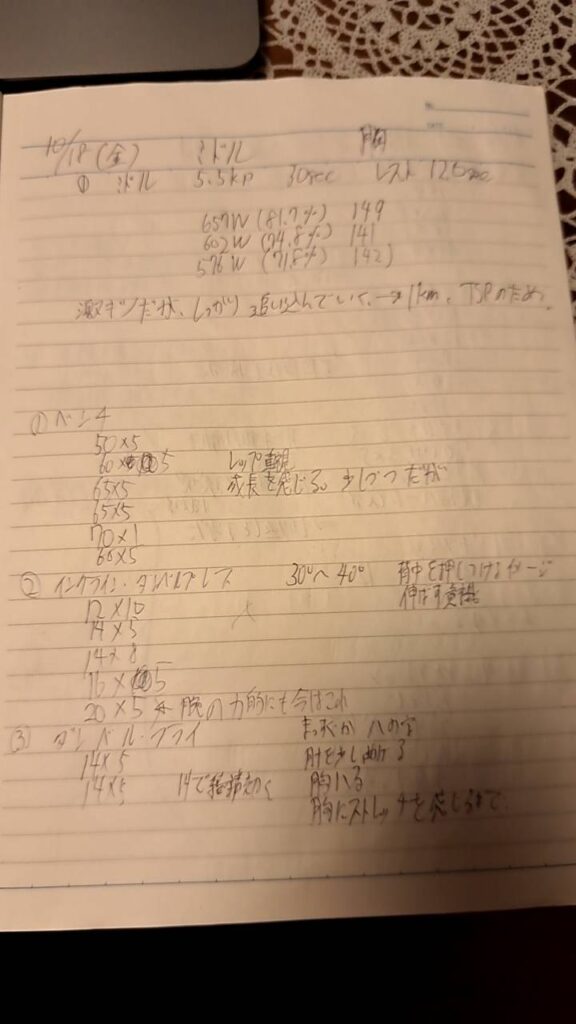 10/18(金) ミドル 胸
① ミドル 5.5kp 30sec レスト 120sec
657W (81.7%) 149
602W (74.8%) 141
576W (71.8%) 142
激キツだが、しっかり追い込んでいく。→ 1km、TSPのため。
① ベンチ
50×5
60×5 レップ重視
65×5 成長を感じる。少しづつだが
65×5
70×1
60×5
② インクライン・ダンベルプレス 30°〜40° 背中を押しつけるイメージ
12×10 伸ばす意識
14×5
14×8
16×5
20×5 ← 腕の力的にも今はこれ
③ ダンベル・フライ まっすぐか ハの字
14×5 肘を少し曲げる
14×5 14で結構効く 胸ハる
胸にストレッチを感じるまで